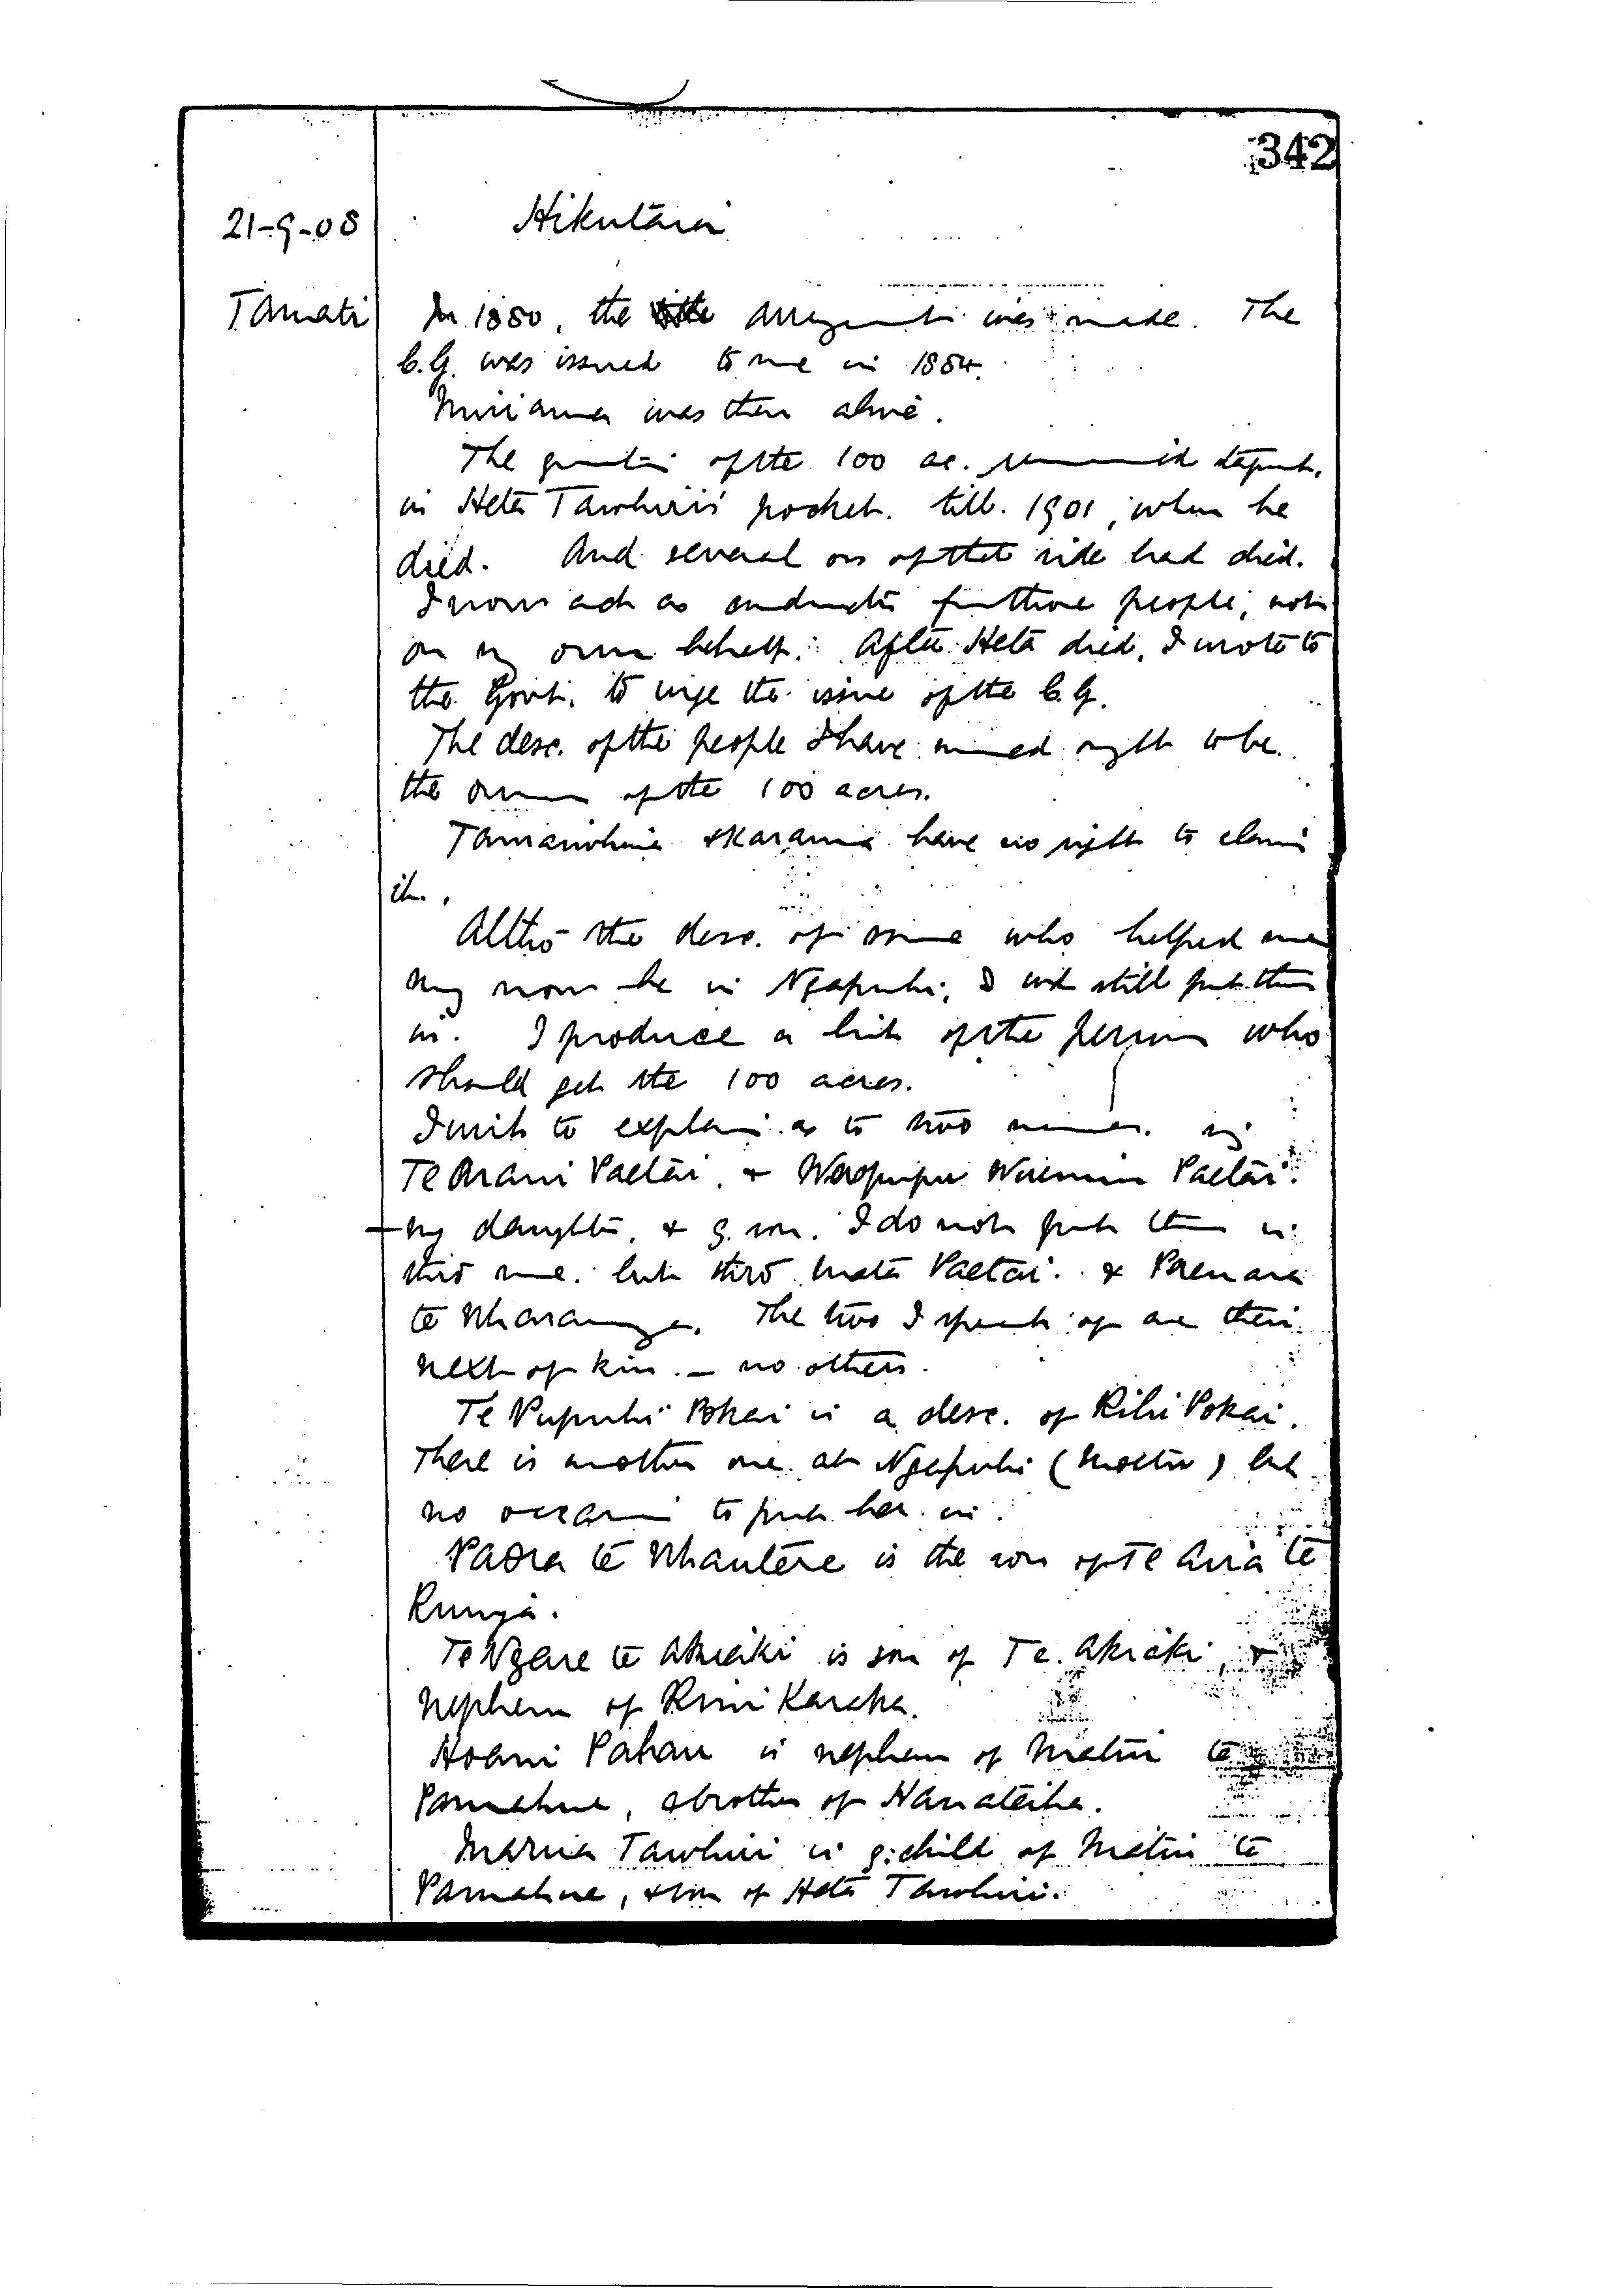 342
21-9-08
Hikutaia
Tamati
In 1880, the arrangement was made. The
C.G. was issued to me in 1884.
Miriama was then alive.
The question of the 100 ac. remained
in Heta Tawhiri's pocket till 1901, when he
died. And several on of that side had died.
I now act as conductor for those people, not
on my own behalf. After Heta died, I wrote to
the Govt. to urge the issue of the C.G.
The desc. of the people I have named ought to be
the owners of the 100 acres.
Tamawhina & Karamia have no right to claim
it.
Altho' the desc. of some who helped me
may now be in Ngapuhi, I wd still put them
in. I produce a list of the persons who
should get the 100 acres.
I wish to explain as to two names
Te Arani Paetai & Paetai
my daughter & g. son. I do not put them in
thro me. but thro Mata Paetai & Paenara
te Wharanga. The two I speak of are their
next of kin. – no others.
Te Pupuhi Pokai is a desc. of Rihi Pokai.
There is another one at Ngapuhi ( ) but
no occasion to put her in.
Paora te Whautere is the son of Te Aria te
Runga.
Te Ngare te Akiaki is son of Te Akiaki, &
nephew of Karaka.
Hoani Pahau is nephew of Matiu te
Pamahue, & brother of
Maria Tawhiri is g.child of Matiu te
Pamahue, & son of Heta Tawhiri.